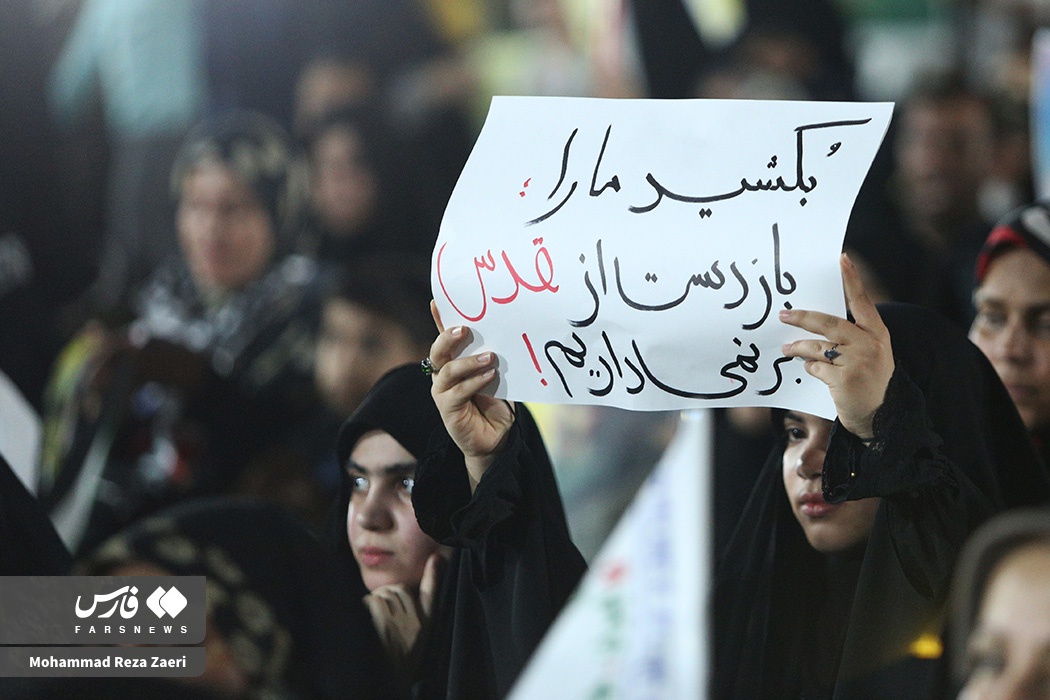 بُکشید ما را؛
باز دست از قدس
بر نمی‌داریم!
فارس
FARSNEWS
Mohammad Reza Zaeri